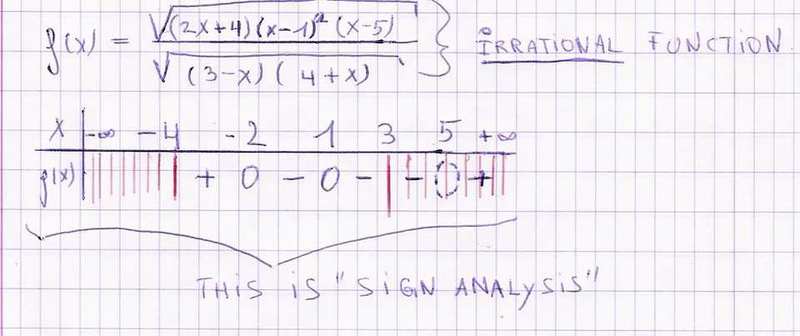 f(x) = √(2x+4)(x-1)²(x-5) / √(3-x)(4+x) } IRRATIONAL FUNCTION.
x | -∞ -4 -2 1 3 5 +∞
f(x) | + 0 - 0 - | - 0 +
THIS IS "SIGN ANALYSIS"